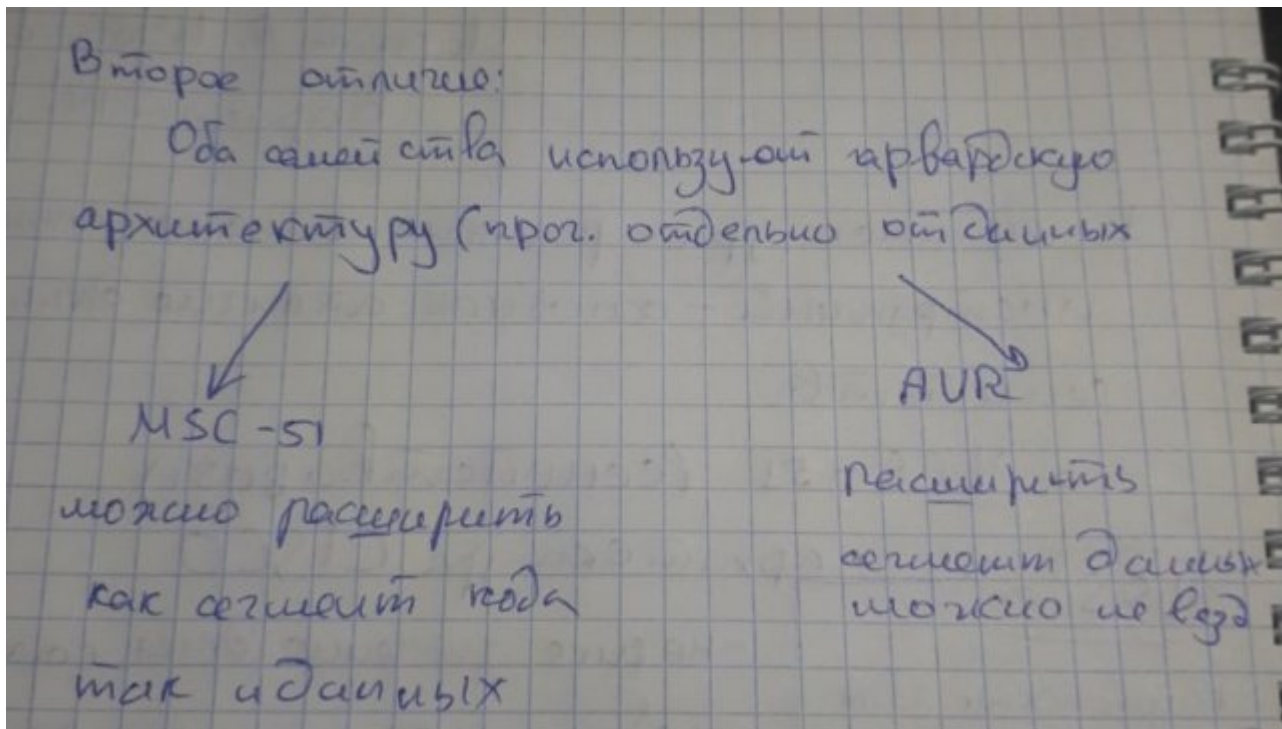 Второе отличие:
Оба семейства использу-ют гарвардскую
архитектуру (прог. отдельно от данных
MSC-51
можно расширить
как сегмент кода
так и данных
AVR
расширить
сегмент данных
можно не везд